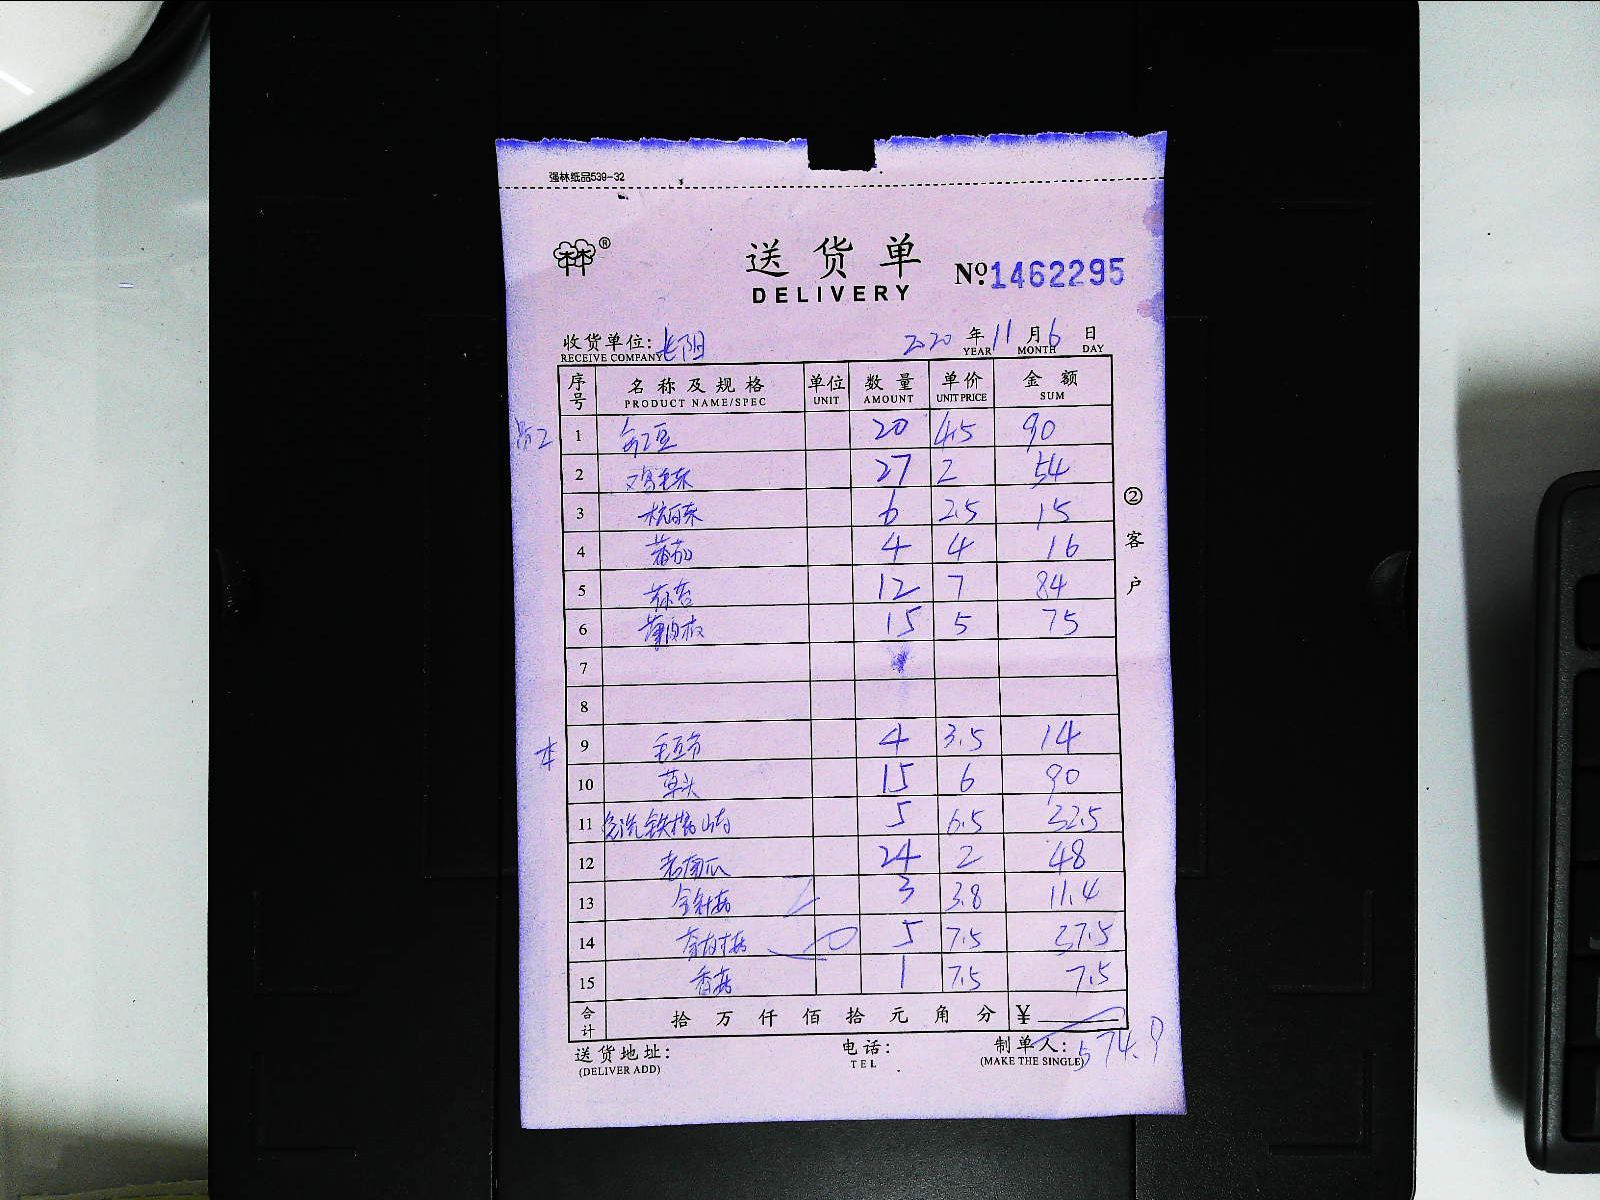 强林纸品539-32
林®
送货单
DELIVERY
No:1462295
收货单位: 长阳 2020 年 11 月 6 日
RECEIVE COMPANY YEAR MONTH DAY
序号 名称及规格 单位 数量 单价 金额
PRODUCT NAME/SPEC UNIT AMOUNT UNIT PRICE SUM
1 20 4.5 90
2 鸡毛菜 27 2 54
3 杭白菜 6 2.5 15
4 番茄 4 4 16
5 12 7 84
6 15 5 75
7
8
本 9 毛豆节 4 3.5 14
10 草头 15 6 90
11 免洗铁棍山药 5 6.5 32.5
12 老南瓜 24 2 48
13 金针菇 3 3.8 11.4
14 5 7.5 37.5
15 香菇 1 7.5 7.5
合计 拾 万 仟 佰 拾 元 角 分 ¥
574.9
送货地址: 电话: 制单人:
(DELIVER ADD) TEL (MAKE THE SINGLE)
② 客户